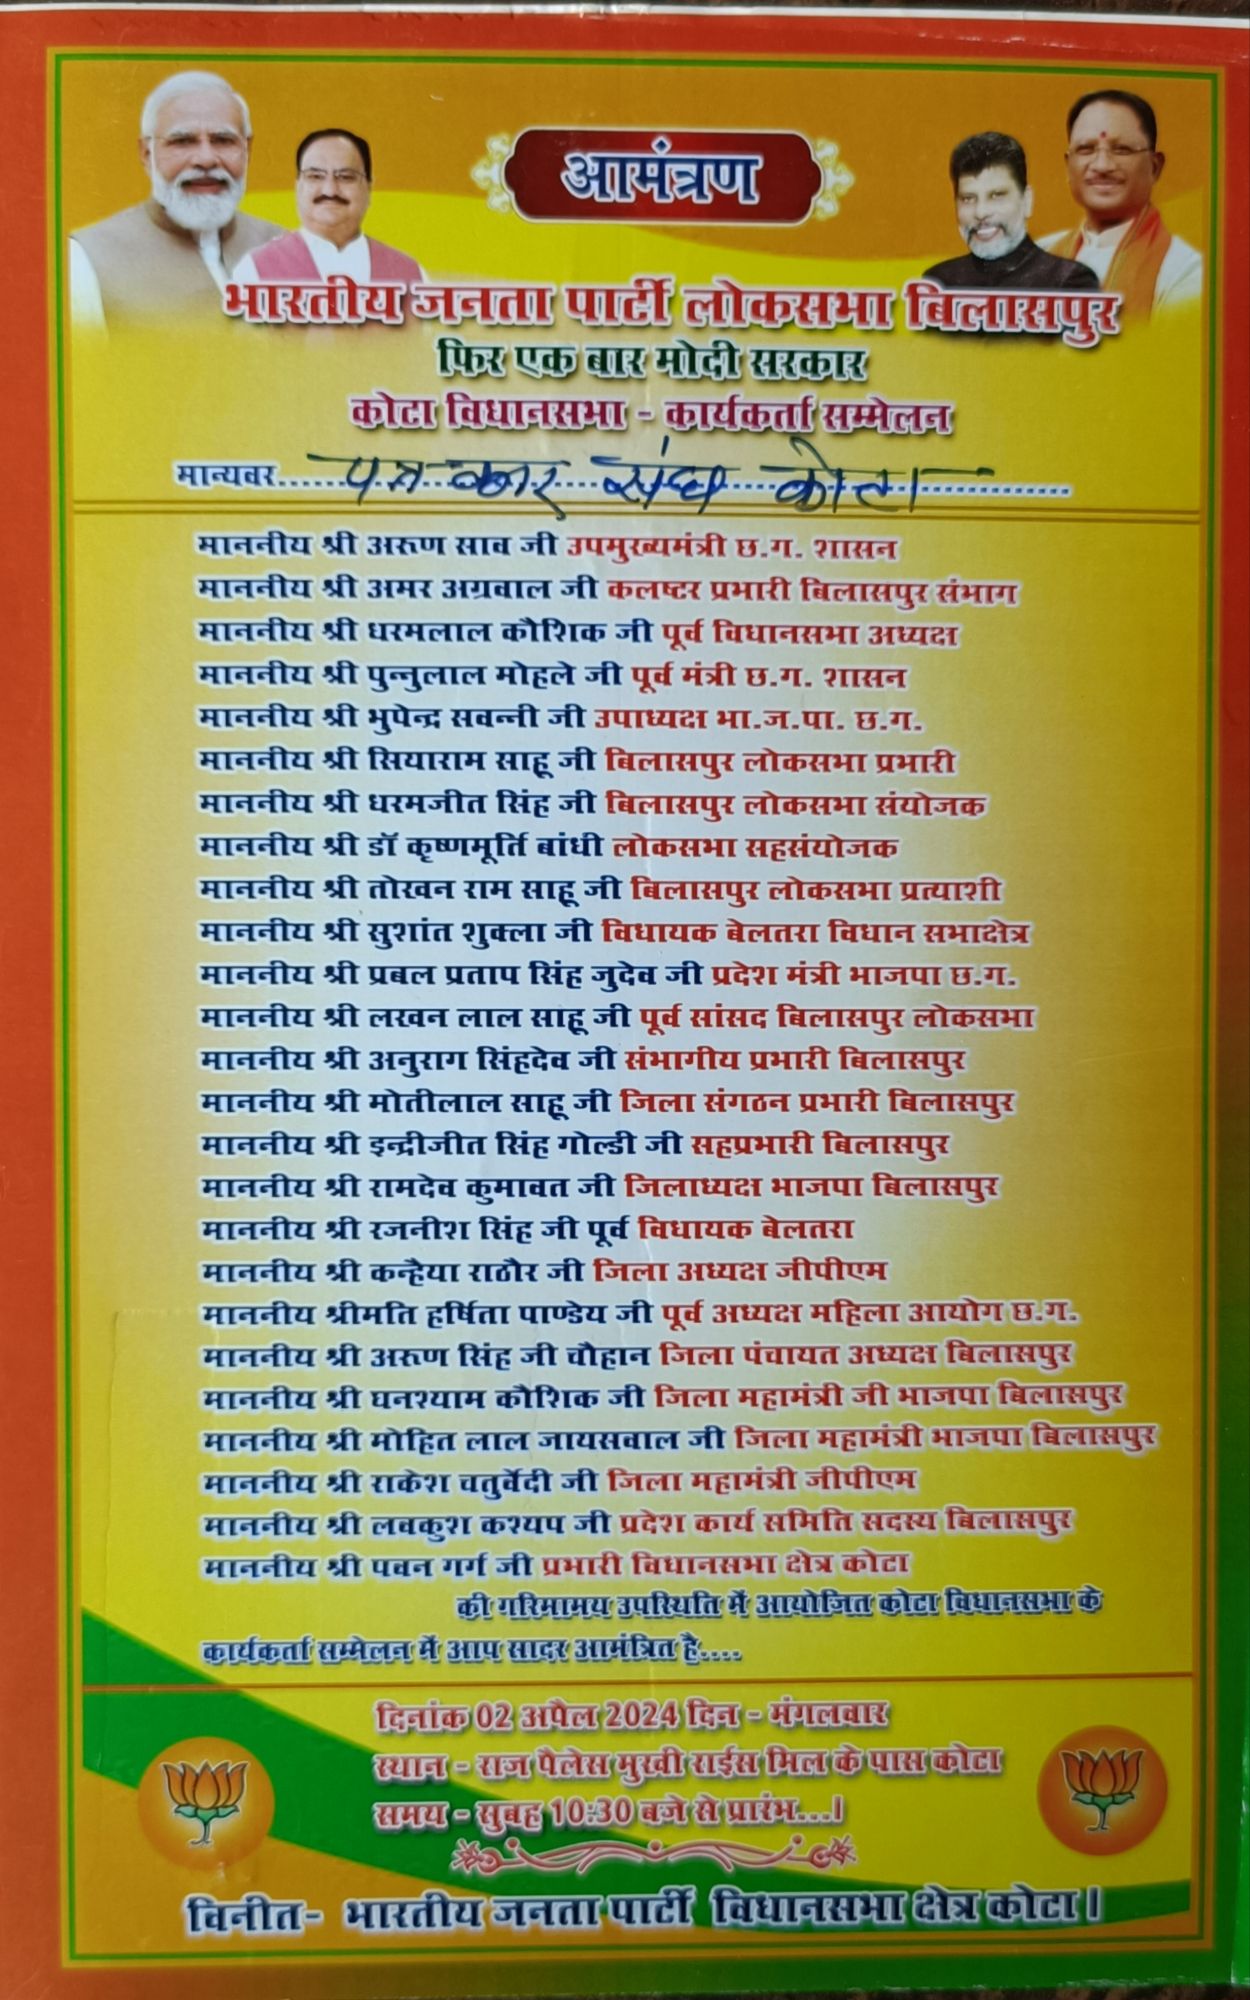 आमंत्रण
भारतीय जनता पार्टी लोकसभा बिलासपुर
फिर एक बार मोदी सरकार
कोटा विधानसभा - कार्यकर्ता सम्मेलन
मान्यवर...... पत्रकार संघ कोटा ......
माननीय श्री अरूण साव जी उपमुख्यमंत्री छ.ग. शासन
माननीय श्री अमर अग्रवाल जी कलष्टर प्रभारी बिलासपुर संभाग
माननीय श्री धरमलाल कौशिक जी पूर्व विधानसभा अध्यक्ष
माननीय श्री पुन्नुलाल मोहले जी पूर्व मंत्री छ.ग. शासन
माननीय श्री भुपेन्द्र सवन्नी जी उपाध्यक्ष भा.ज.पा. छ.ग.
माननीय श्री सियाराम साहू जी बिलासपुर लोकसभा प्रभारी
माननीय श्री धरमजीत सिंह जी बिलासपुर लोकसभा संयोजक
माननीय श्री डॉ कृष्णमूर्ति बांधी लोकसभा सहसंयोजक
माननीय श्री तोखन राम साहू जी बिलासपुर लोकसभा प्रत्याशी
माननीय श्री सुशांत शुक्ला जी विधायक बेलतरा विधान सभाक्षेत्र
माननीय श्री प्रबल प्रताप सिंह जुदेव जी प्रदेश मंत्री भाजपा छ.ग.
माननीय श्री लखन लाल साहू जी पूर्व सांसद बिलासपुर लोकसभा
माननीय श्री अनुराग सिंहदेव जी संभागीय प्रभारी बिलासपुर
माननीय श्री मोतीलाल साहू जी जिला संगठन प्रभारी बिलासपुर
माननीय श्री इन्द्रीजीत सिंह गोल्डी जी सहप्रभारी बिलासपुर
माननीय श्री रामदेव कुमावत जी जिलाध्यक्ष भाजपा बिलासपुर
माननीय श्री रजनीश सिंह जी पूर्व विधायक बेलतरा
माननीय श्री कन्हैया राठौर जी जिला अध्यक्ष जीपीएम
माननीय श्रीमति हर्षिता पाण्डेय जी पूर्व अध्यक्ष महिला आयोग छ.ग.
माननीय श्री अरूण सिंह जी चौहान जिला पंचायत अध्यक्ष बिलासपुर
माननीय श्री घनश्याम कौशिक जी जिला महामंत्री जी भाजपा बिलासपुर
माननीय श्री मोहित लाल जायसवाल जी जिला महामंत्री भाजपा बिलासपुर
माननीय श्री राकेश चतुर्वेदी जी जिला महामंत्री जीपीएम
माननीय श्री लवकुश कश्यप जी प्रदेश कार्य समिति सदस्य बिलासपुर
माननीय श्री पवन गर्ग जी प्रभारी विधानसभा क्षेत्र कोटा
की गरिमामय उपस्थिति में आयोजित कोटा विधानसभा के
कार्यकर्ता सम्मेलन में आप सादर आमंत्रित है....
दिनांक 02 अपैल 2024 दिन - मंगलवार
स्थान - राज पैलेस मुरखी राईस मिल के पास कोटा
समय - सुबह 10:30 बजे से प्रारंभ...।
विनीत- भारतीय जनता पार्टी विधानसभा क्षेत्र कोटा।